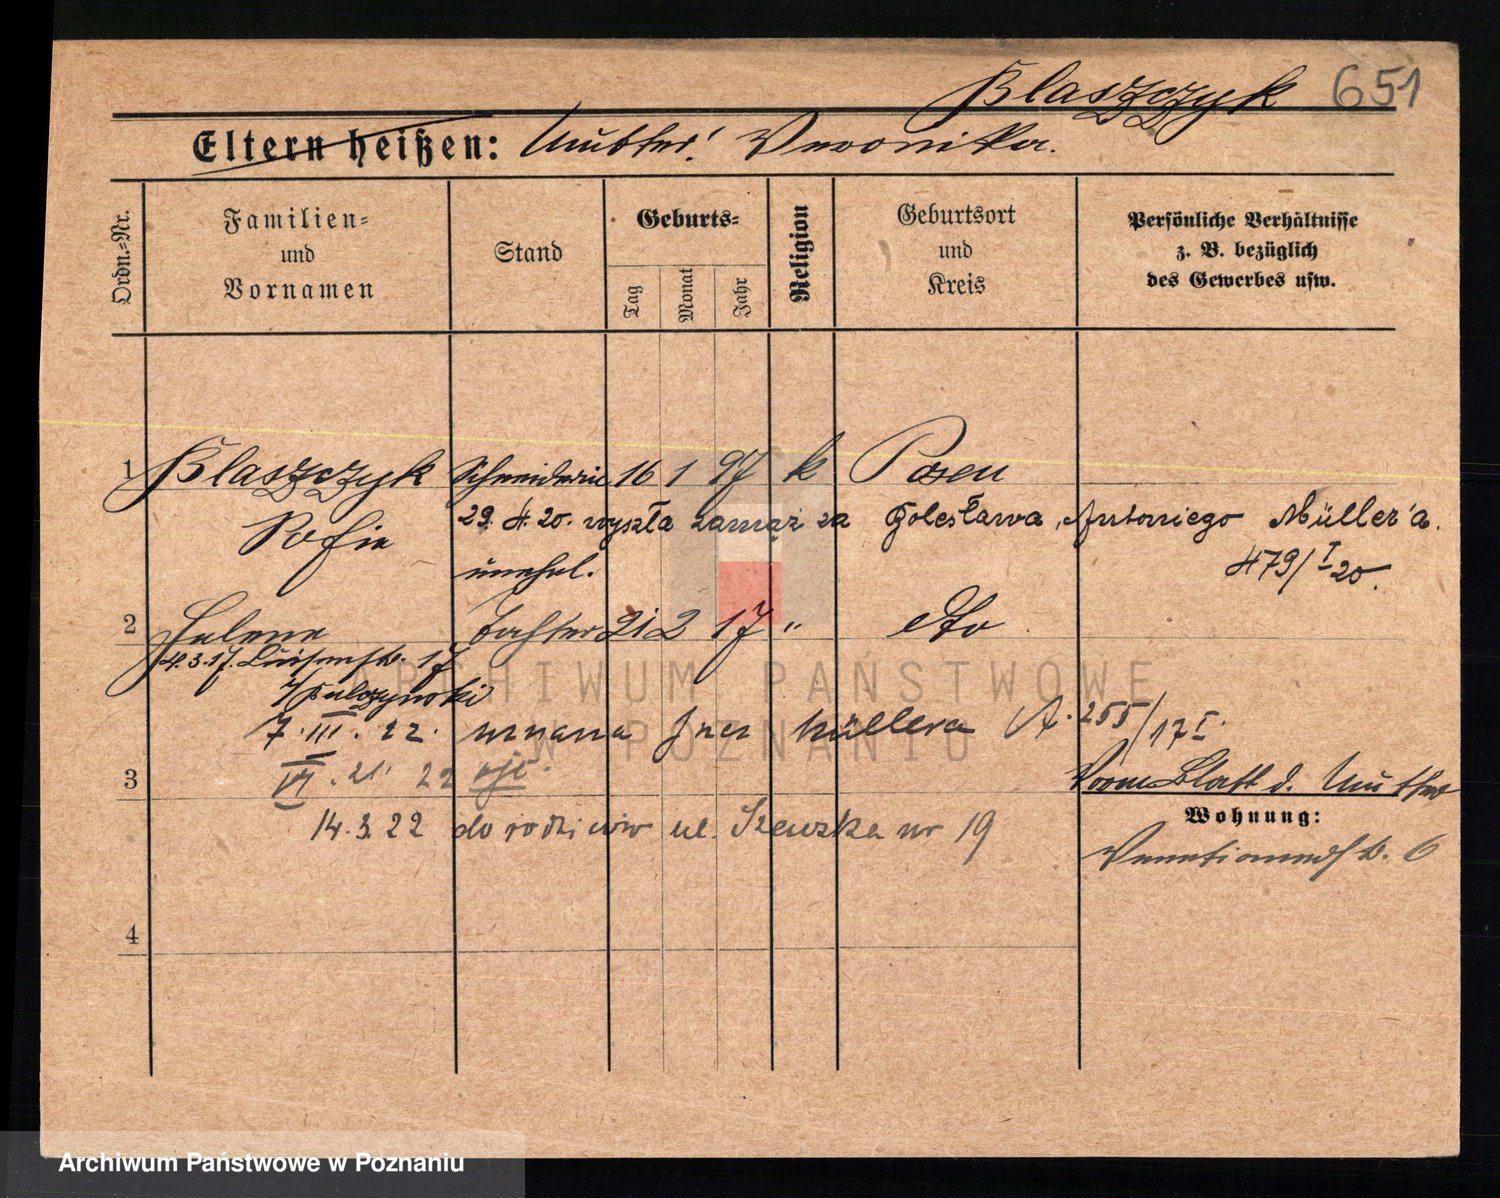 Blaszczyk 651
Eltern heißen: Mutter: Veronika.
Ordn.=Nr.
Familien=
und
Vornamen
Stand
Geburts=
Tag
Monat
Jahr
Religion
Geburtsort
und
Kreis
Persönliche Verhältnisse
z. B. bezüglich
des Gewerbes usw.
1 Blaszczyk Schneiderin 16 1 97 k Posen
Sofie 29. 4. 20. wyszła zamąż za Bolesława, Antoniego Müller'a.
unehel. 479/I 20.
2 Helene Tochter 21 2 17 " dto
4.3.17. Luisenstr. 17
7. III. 22. uznana przez Müllera A. 255/17 I.
3 VI. 21. 22
Vorm. Blatt d. Mutter
Wohnung:
14.3.22 do rodziców ul. Szewska nr 19
Venetianerstr. 6
4
ARCHIWUM PAŃSTWOWE
W POZNANIU
Archiwum Państwowe w Poznaniu